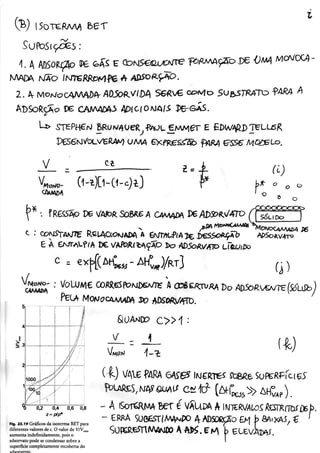 i
(B) ISOTERMA BET
SUPOSIÇÕES:
1. A ADSORÇÃO DE GÁS E CONSEQUENTE FORMAÇÃO DE UMA MONOCA-
MADA NÃO INTERROMPE A ADSORÇÃO.
2. A MONOCAMADA ADSORVIDA SERVE COMO SUBSTRATO PARA A
ADSORÇÃO DE CAMADAS ADICIONAIS DE GÁS.
↳ STEPHEN BRUNAUER, PAUL EMMET E EDWARD TELLER
DESENVOLVERAM UMA EXPRESSÃO PARA ESSE MODELO.
V / V_MONO-CAMADA = cz / (1-z)[1-(1-c)z]   z = p / p*   (i)
p*
SÓLIDO
p*: PRESSÃO DE VAPOR SOBRE A CAMADA DE ADSORVATO
MONOCAMADA DE ADSORVATO
c: CONSTANTE RELACIONADA À ENTALPIA DE DESSORÇÃO DA MONOCAMADA
E À ENTALPIA DE VAPORIZAÇÃO DO ADSORVATO LÍQUIDO
c = exp[(ΔH°DESS - ΔH°VAP)/RT]   (j)
VMONO-CAMADA: VOLUME CORRESPONDENTE À COBERTURA DO ADSORVENTE (SÓLIDO)
PELA MONOCAMADA DO ADSORVATO.
QUANDO C>>1:
V / VMON = 1 / 1-z   (k)
(k) VALE PARA GASES INERTES SOBRE SUPERFÍCIES
POLARES, NAS QUAIS C≈10² (ΔH°DESS >> ΔH°VAP).
- A ISOTERMA BET É VÁLIDA A INTERVALOS RESTRITOS DE p.
- ERRA SUBESTIMANDO A ADSORÇÃO EM p BAIXAS, E
SUPERESTIMANDO A ADS. EM p ELEVADAS.
5
4
3
2
1
V/Vmon
1000
100
10
0
0,2
0,4
0,6
0,8
z = p/p*
Fig. 25.19 Gráficos da isoterma BET para
diferentes valores de c. O valor de V/Vmon
aumenta indefinidamente, pois o
adsorvato pode se condensar sobre a
superfície completamente recoberta do
adsorvente.